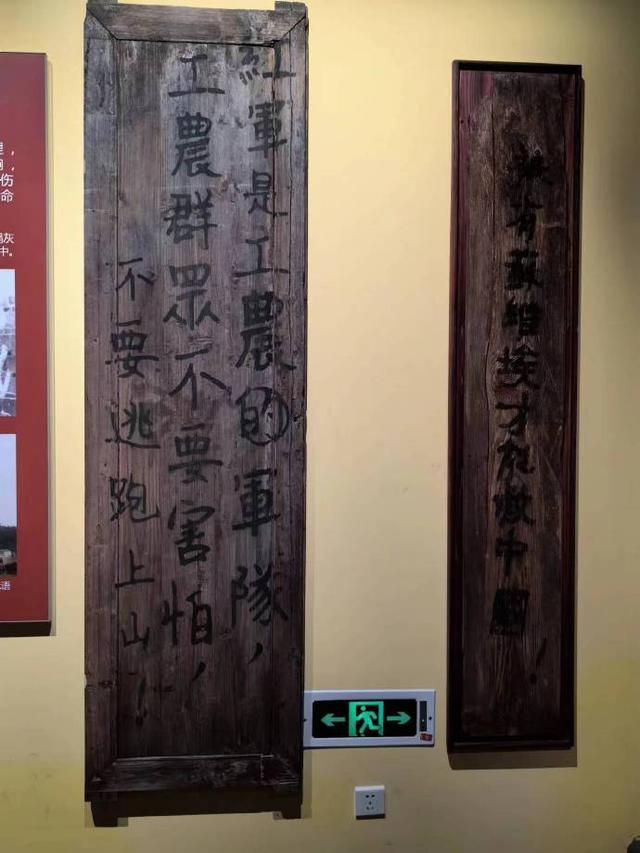 伤
命
灰
中。
语
紅軍是工農的軍隊，
工農群眾不要害怕，
不要逃跑上山！
有蘇維埃才能救中國！